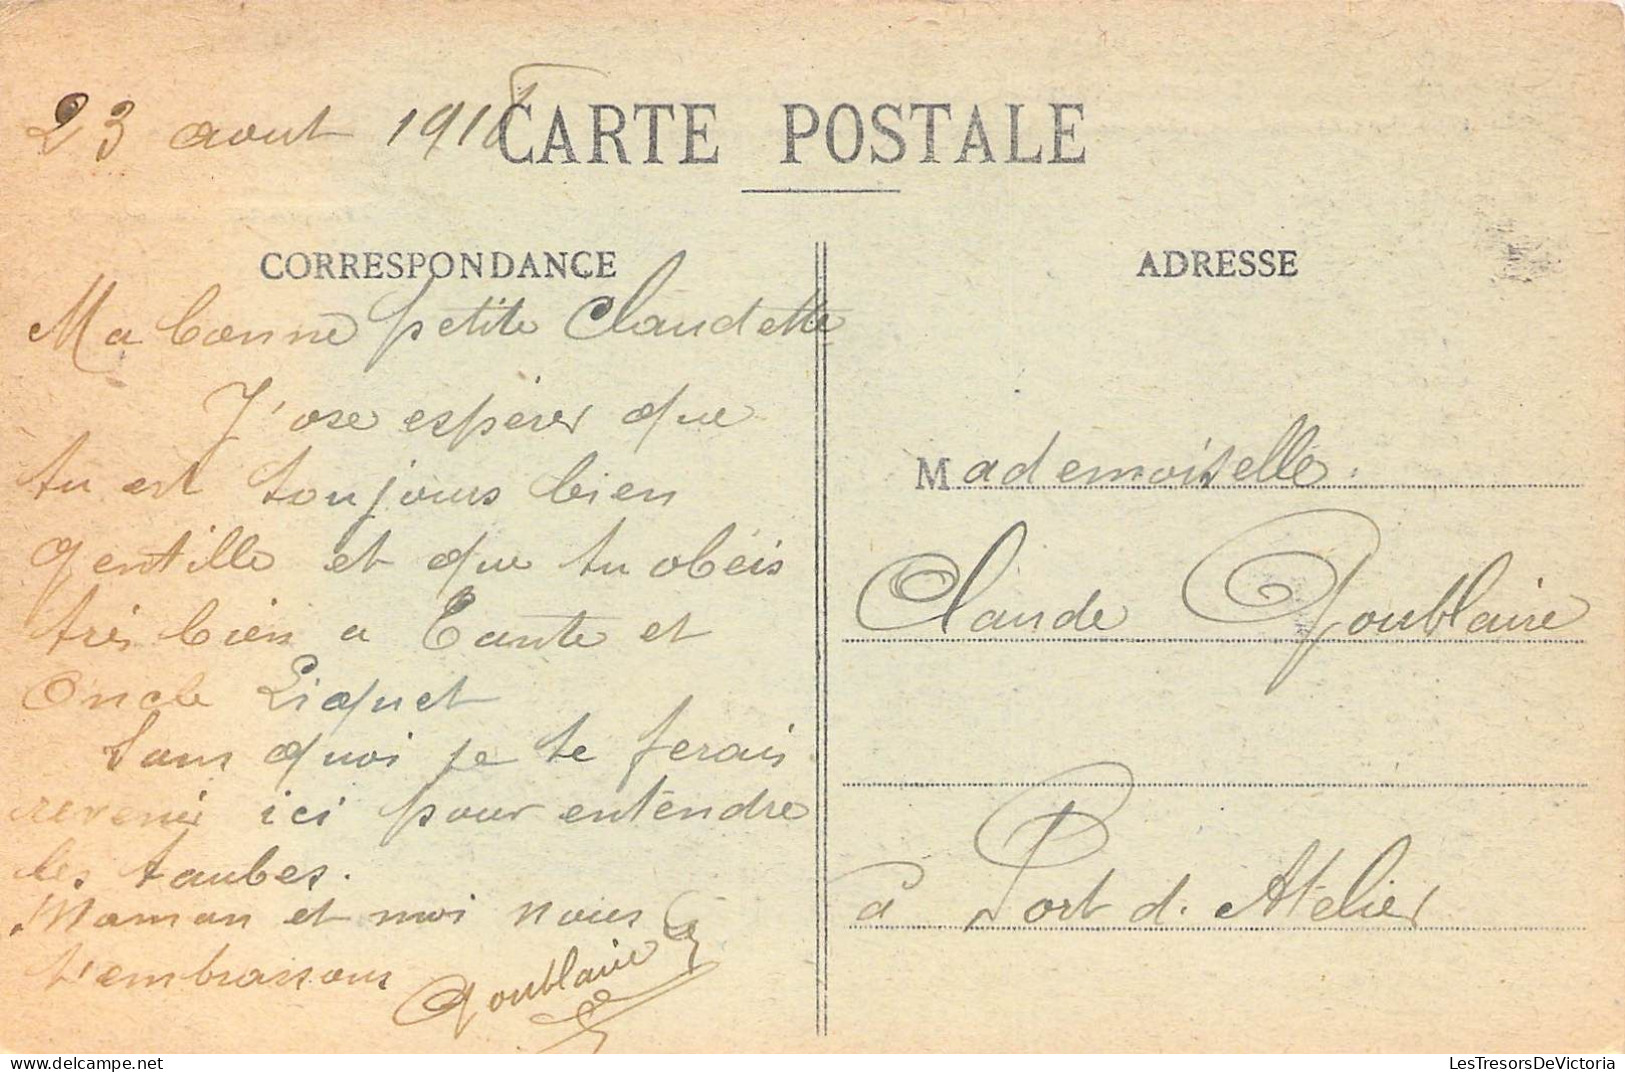 23 aout 1918
CARTE POSTALE
CORRESPONDANCE
Ma bonne petite Claudette
J'ose espérer que
tu est toujours bien
gentille et que tu obéis
très bien a Tante et
Oncle Liquet
Sans quoi je te ferais
revenir ici pour entendre
les taubes.
Maman et moi nous
t'embrassons Goublaire
ADRESSE
Mademoiselle
Claude Goublaire
a Port d. Atelier
LesTresorsDeVictoria